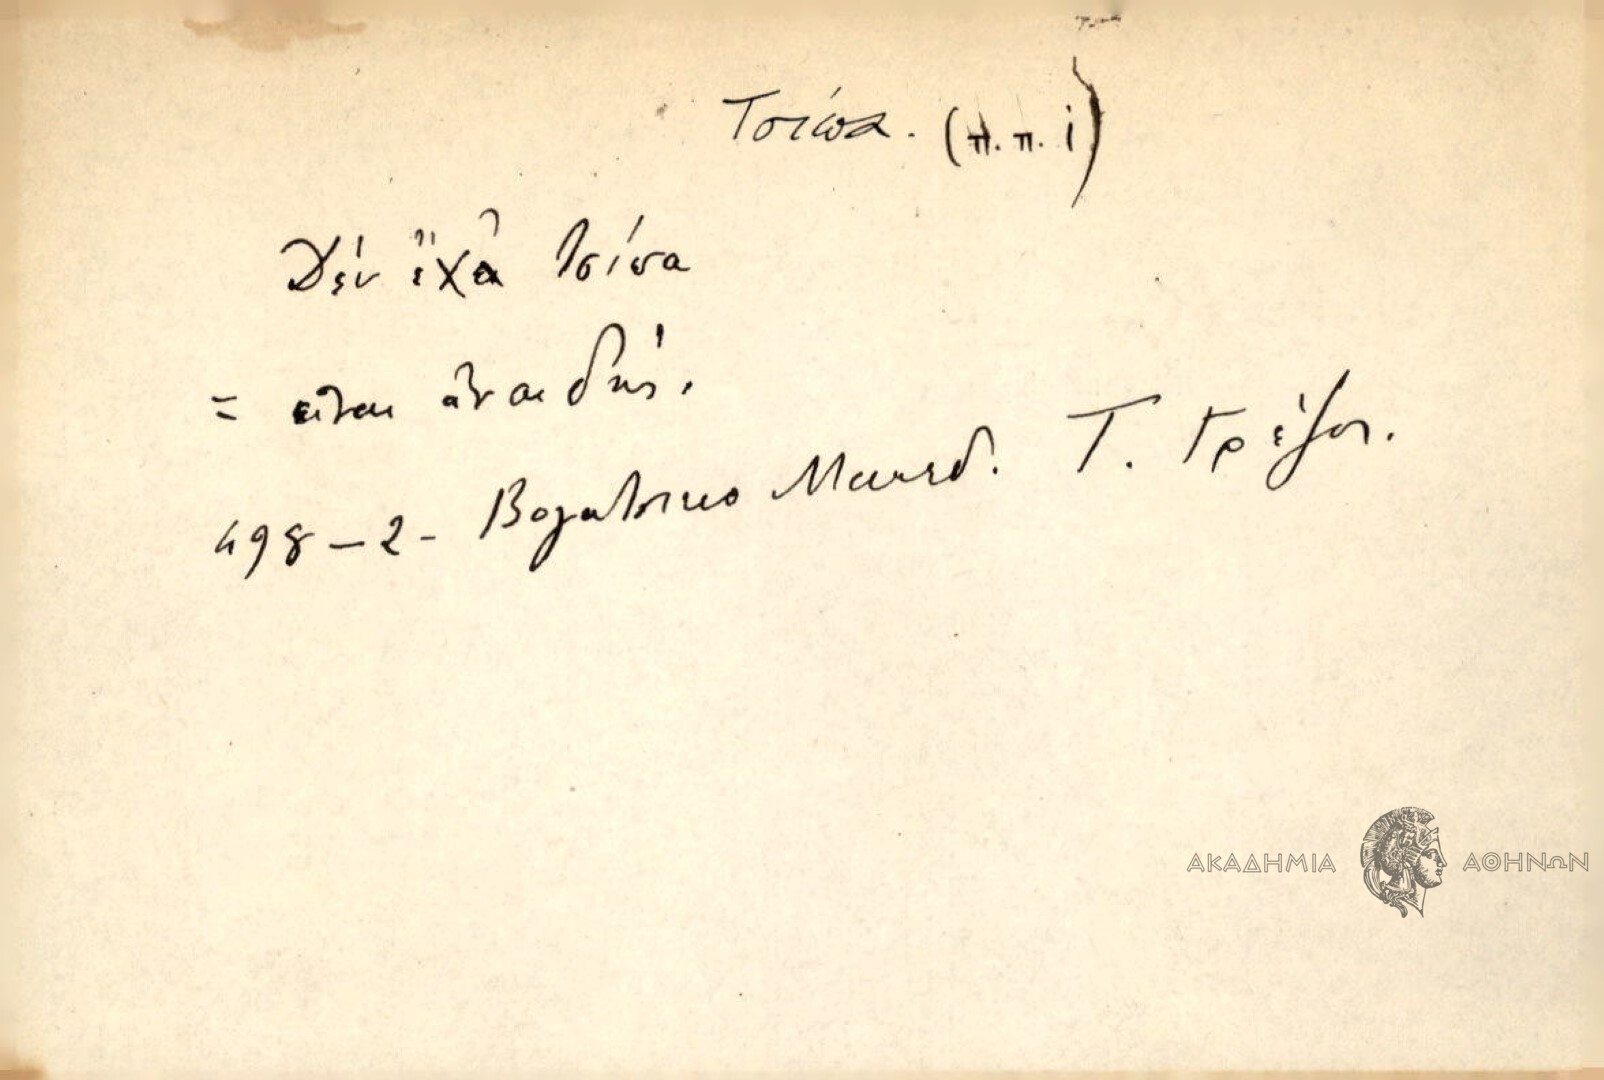 Τσίπα. (π. π. ἰ)
Δέν ἔχει τσίπα
= εἶναι ἀναιδής.
498-2- Βογατσικό Μακεδ. Τ. Γρέζος.
ΑΚΑΔΗΜΙΑ ΑΘΗΝΩΝ